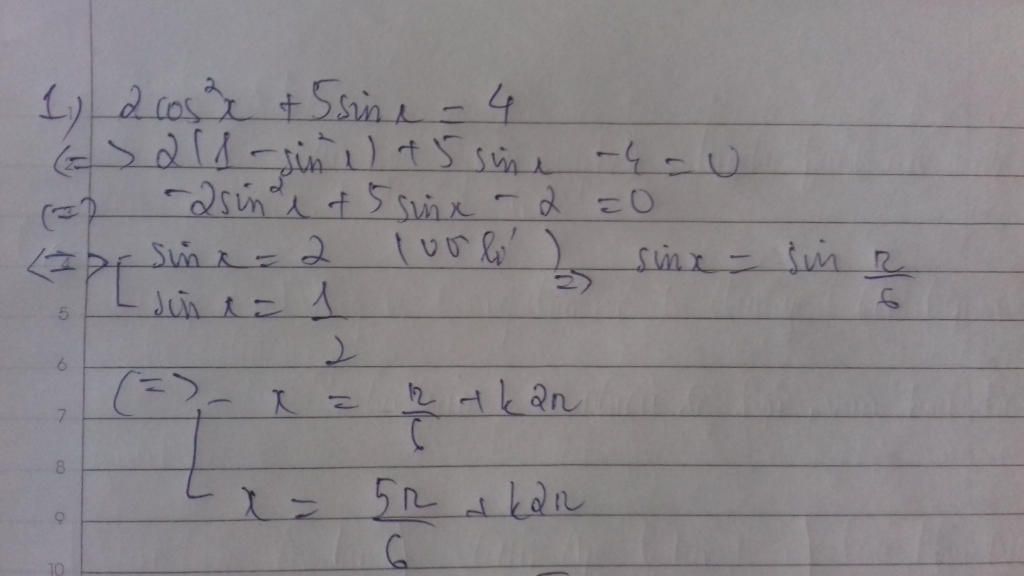 1.) 2cos²x + 5sinx = 4
<=> 2(1 - sin²x) + 5 sinx - 4 = 0
<=> -2sin²x + 5 sinx - 2 = 0
<=> [ sin x = 2 (vô lí) => sinx = sin π/6
sin x = 1/2
5
6
<=> [ x = π/6 + k2π
7
8
x = 5π/6 + k2π
9
10